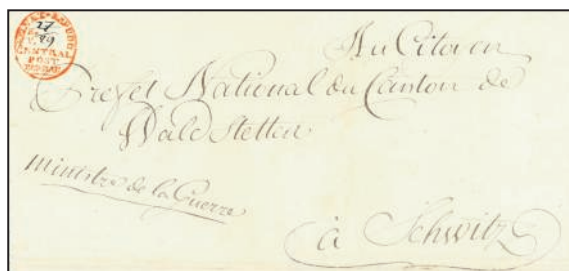 27
89
CENTRAL
POST
Au Citoyen
Prefet National du Canton de
Wald stetten
Ministre de la Guerre
à Schwitz